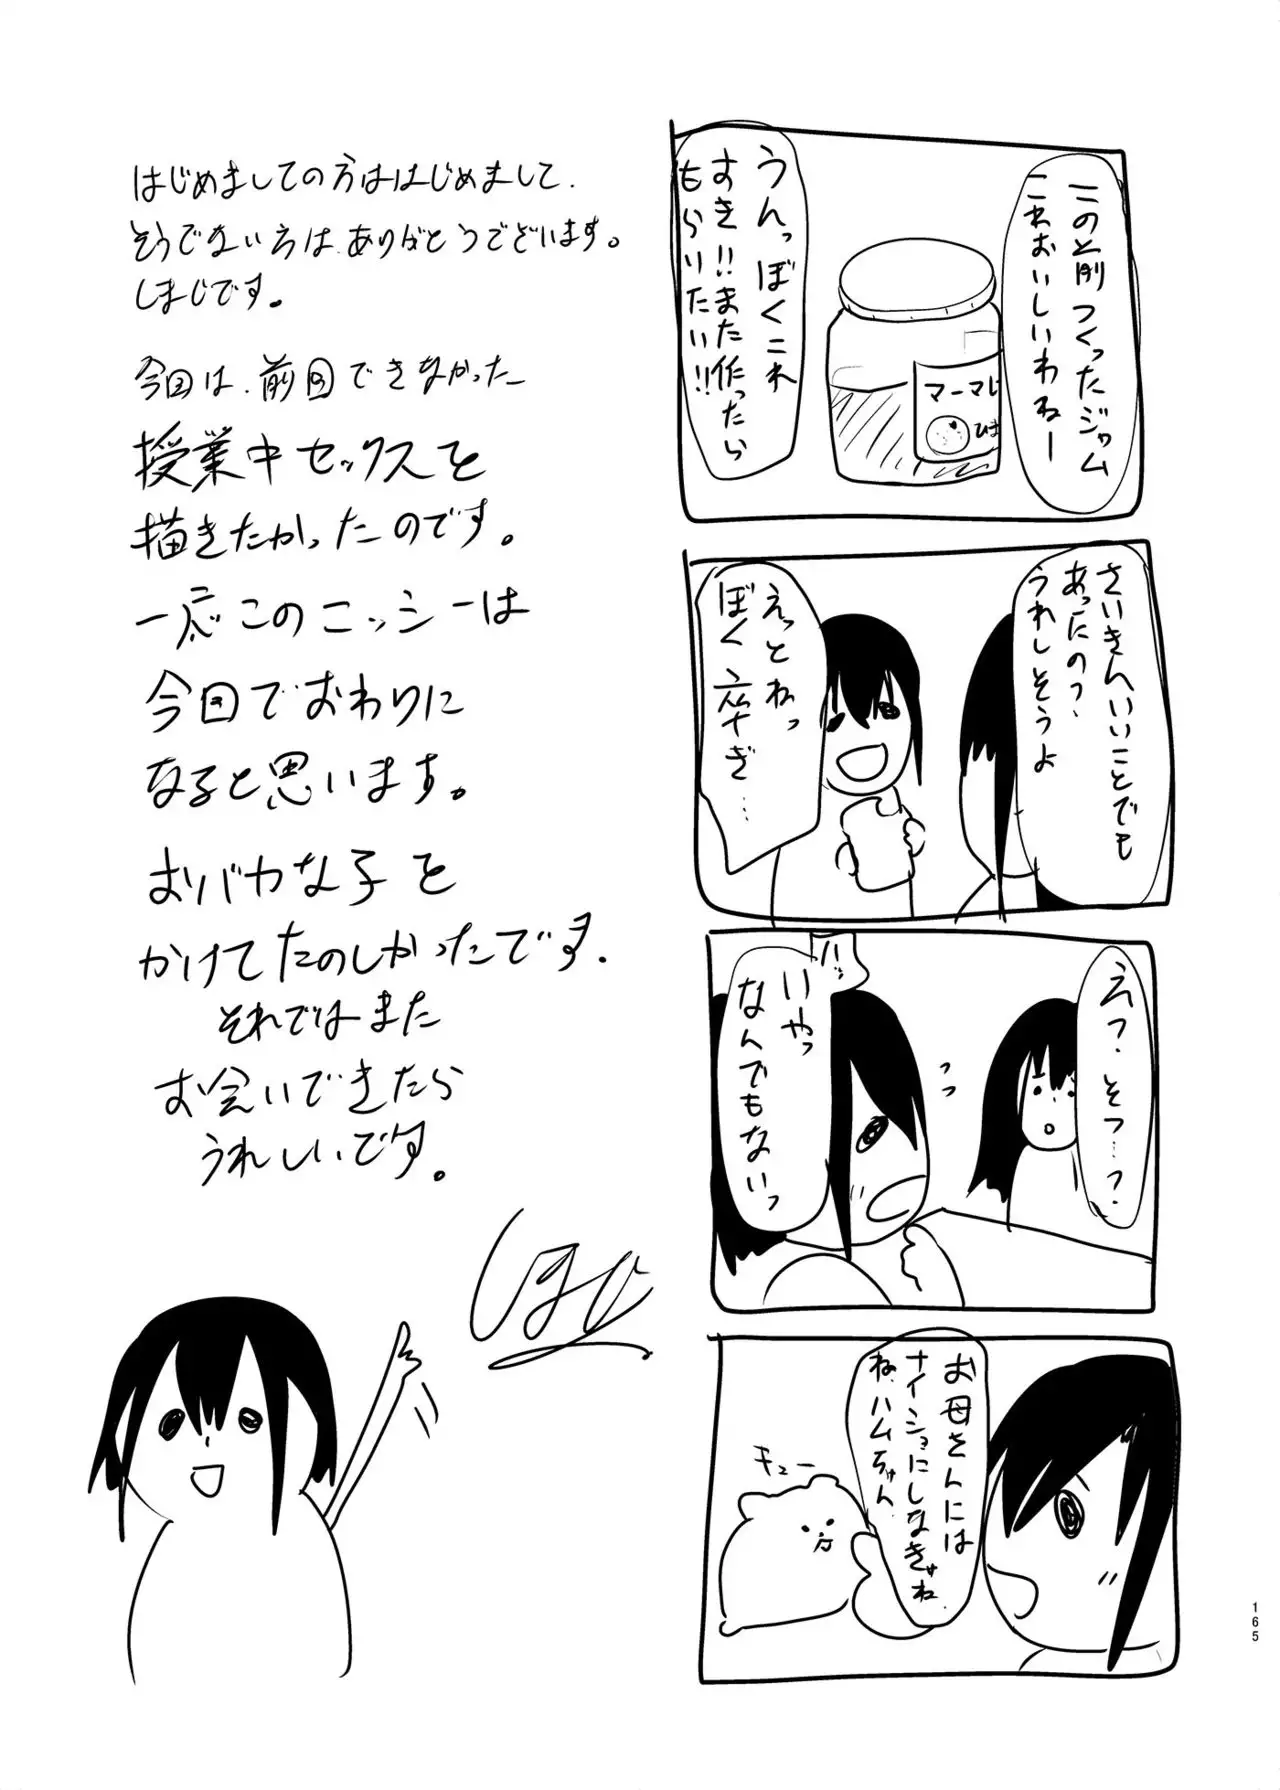 この前つくったジャム
これおいしいわねー
うんっぼくこれ
すき!!また作ったら
もらいたい!!
マーマレ
さいきんいいことでも
あったの?
うれしそうよ
えっとねっ
ぼく 卒ぎ…
えっ、そつ…?
ハッ
いやっ
なんでもないっ
お母さんには
ナイショにしなきゃね
ね、ハムちゃん
キュー
はじめましての方ははじめまして、
そうでない方は、ありがとうございます。
しまじです。
今回は、前回できなかった
授業中セックスを
描きたかったのです。
一応このニッシーは
今回でおわりに
なると思います。
おバカな子を
かけてたのしかったです。
それではまた
お会いできたら
うれしいです。
しまじ
165